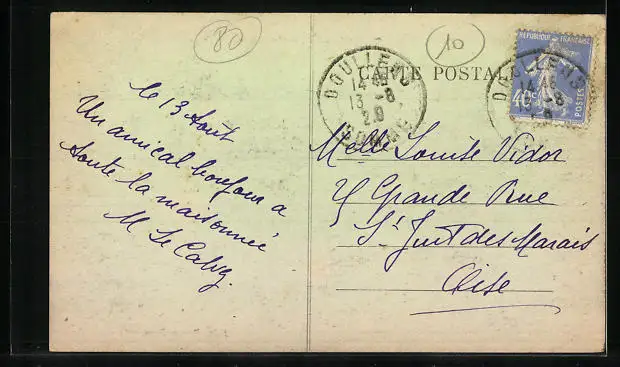 80
10
CARTE POSTALE
DOULLENS
14 45
13 -8
29
SOMME
RÉPUBLIQUE FRANÇAISE
40c
POSTES
DOULLENS
le 13 Aout
Un amical bonjour a
toute la maisonnée
M Le
Melle Louise Vidor
Grande Rue
St Just des Marais
Oise